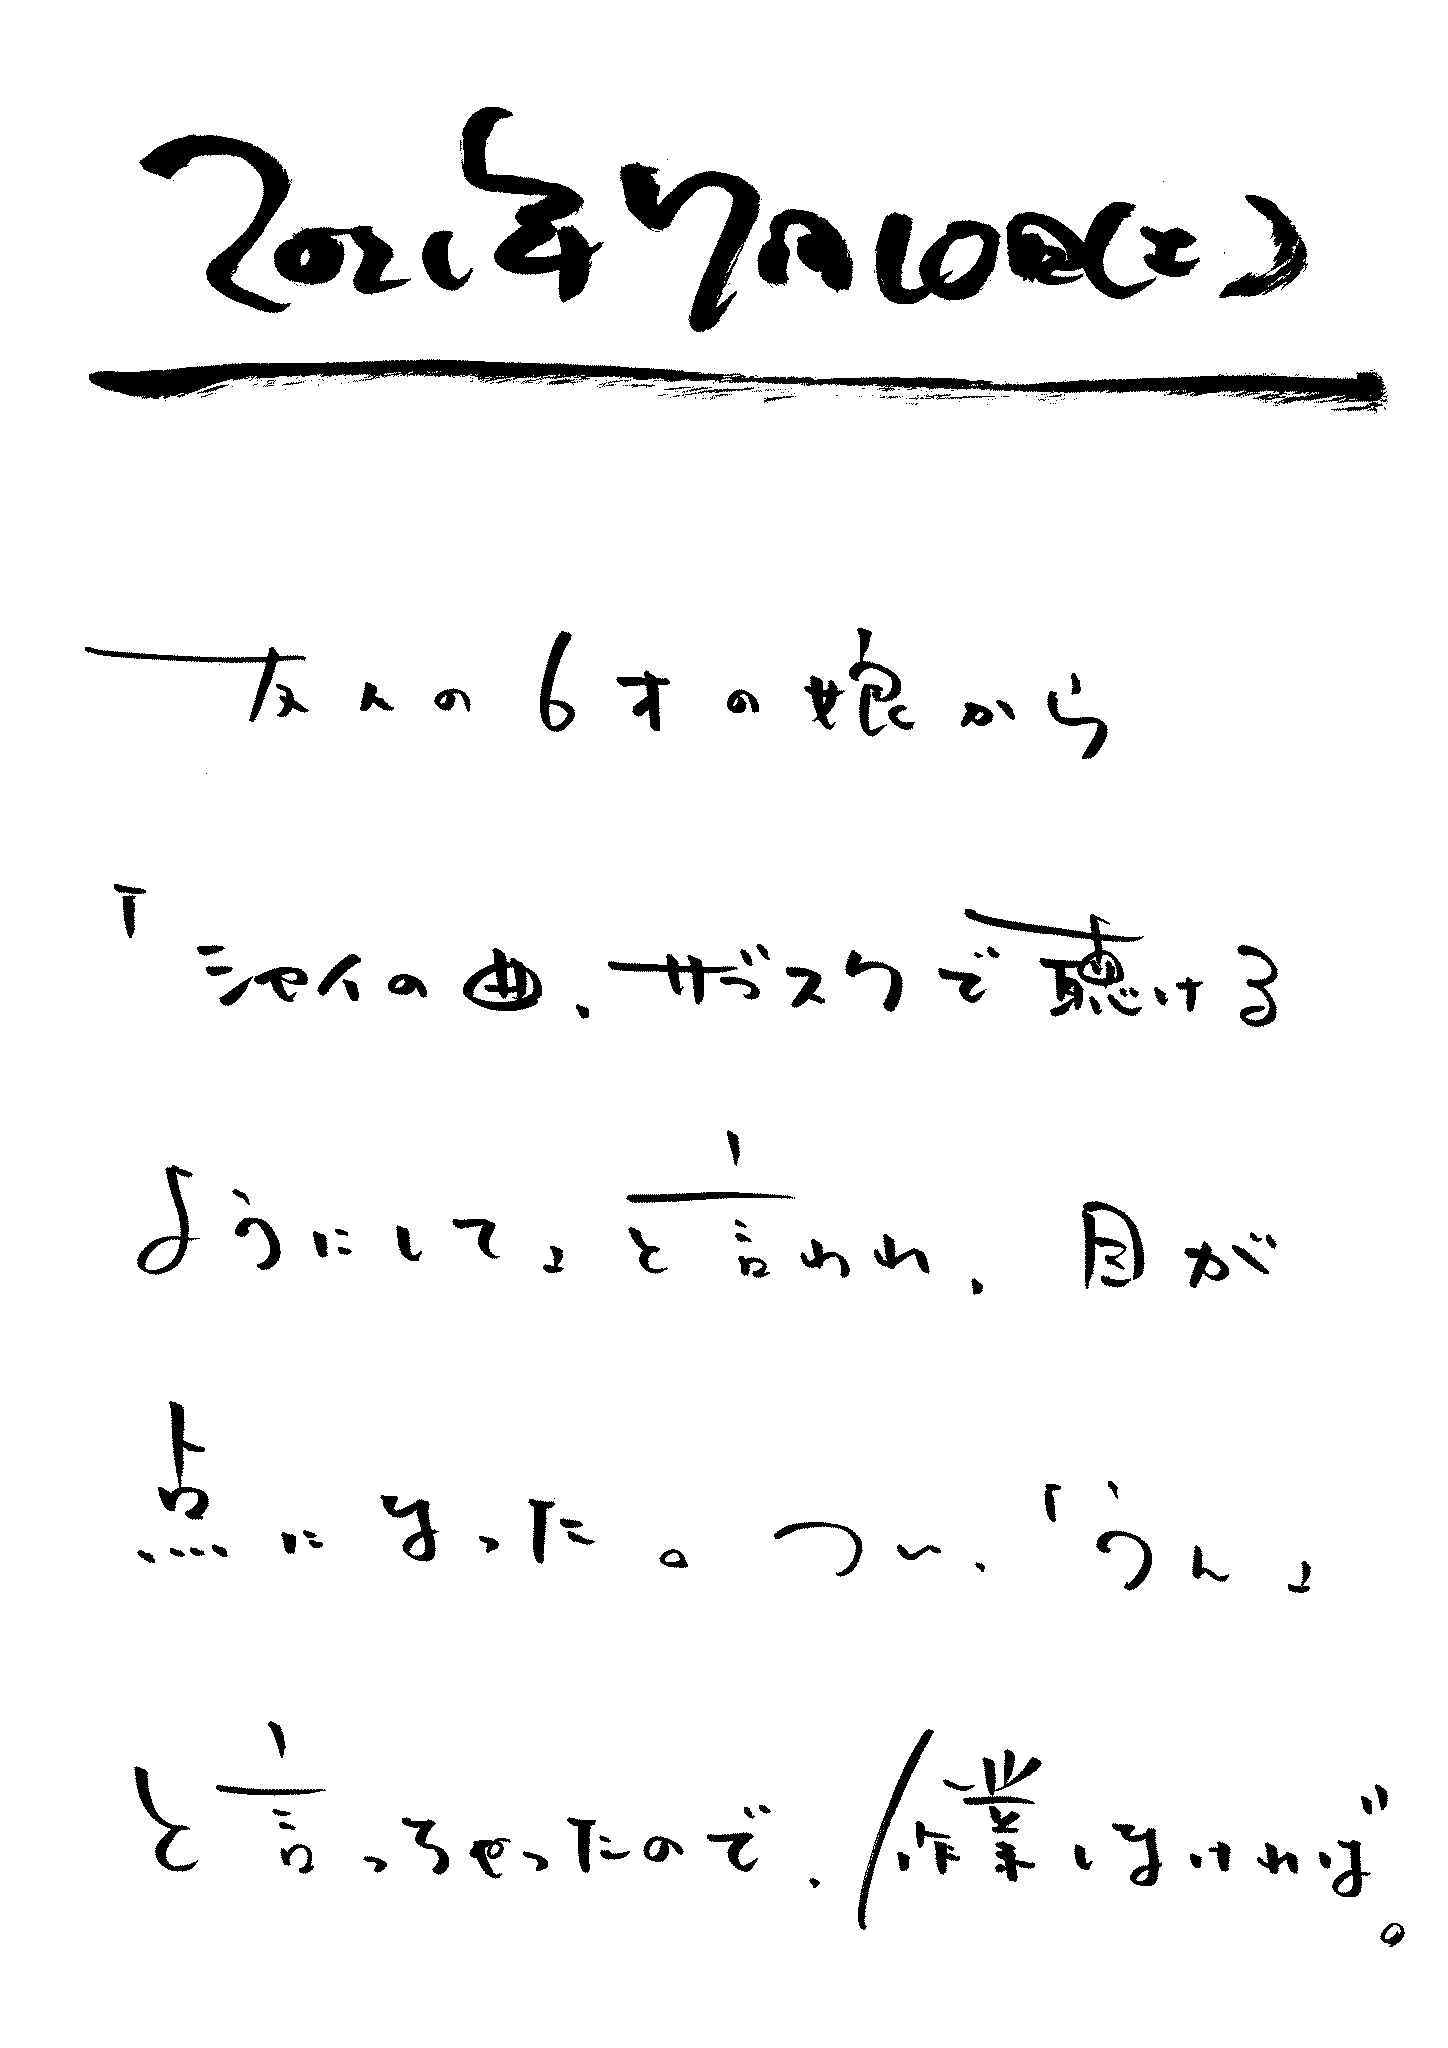 2021年7月10日(土)
友人の6才の娘から
「シャイの曲、サブスクで聴ける
ようにして」と言われ、目が
点になった。つい、「うん」
と言っちゃったので、作業しなければ。